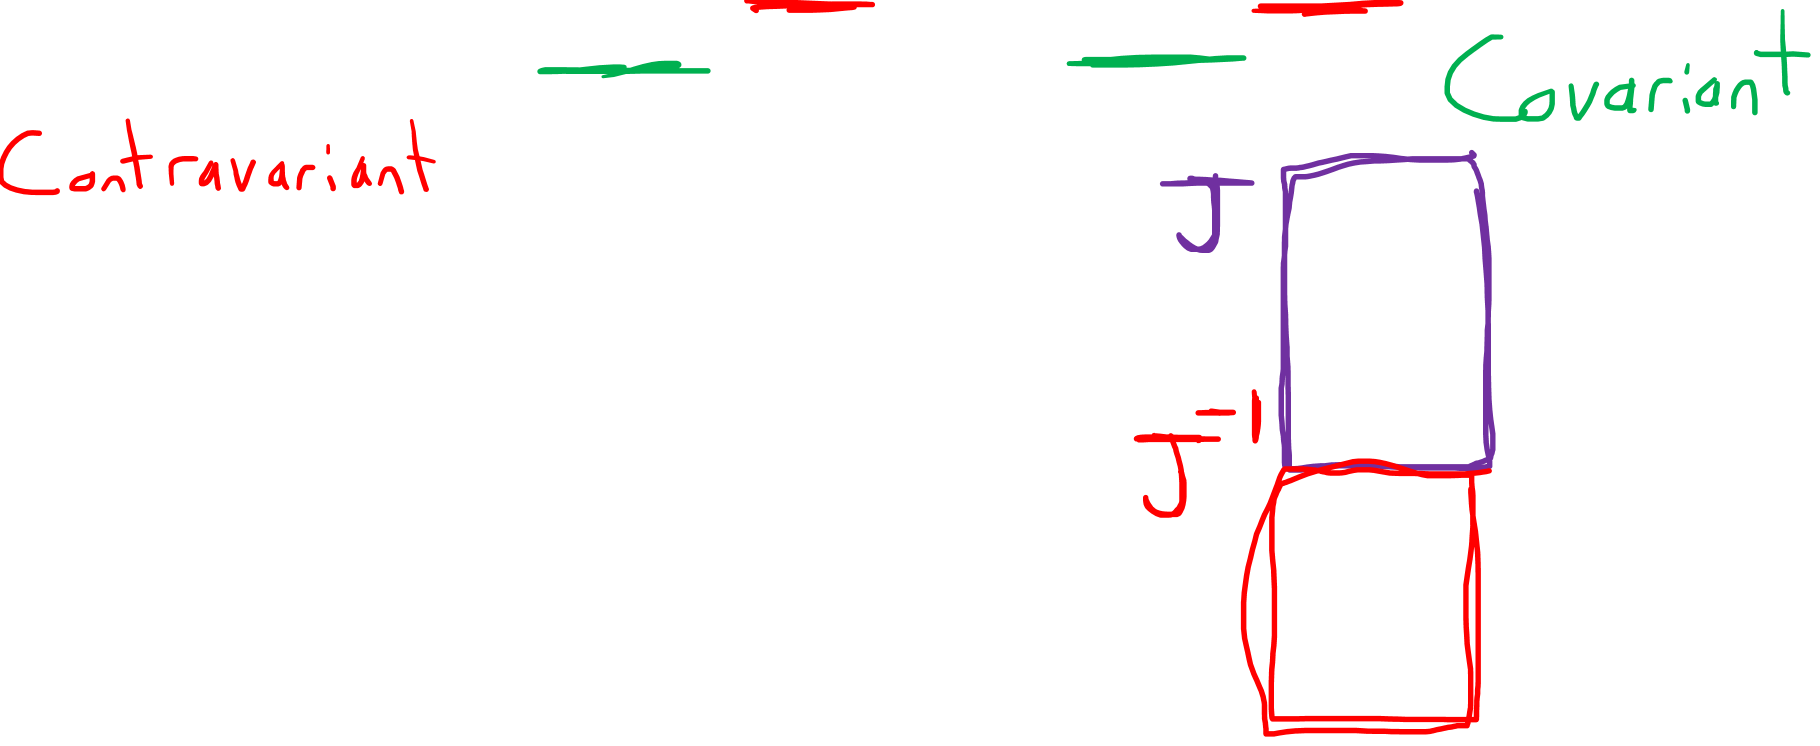 Covariant
Contravariant
J
J⁻¹